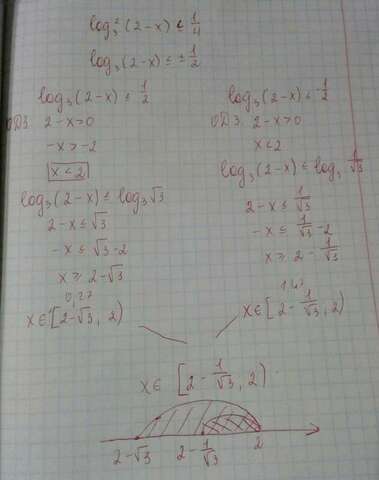 log₃²(2-x) ≤ 1/4
log₃(2-x) ≤ ± 1/2
log₃(2-x) ≤ 1/2
ОДЗ. 2-x>0
-x>-2
x<2
log₃(2-x) ≤ log₃√3
2-x ≤ √3
-x ≤ √3-2
x ≥ 2-√3
0,27
x∈[2-√3, 2)
log₃(2-x) ≤ -1/2
ОДЗ. 2-x>0
x<2
log₃(2-x) ≤ log₃ 1/√3
2-x ≤ 1/√3
-x ≤ 1/√3 -2
x ≥ 2 - 1/√3
x∈[2 - 1/√3, 2)
x∈ [2 - 1/√3, 2)
2-√3 2 - 1/√3 2